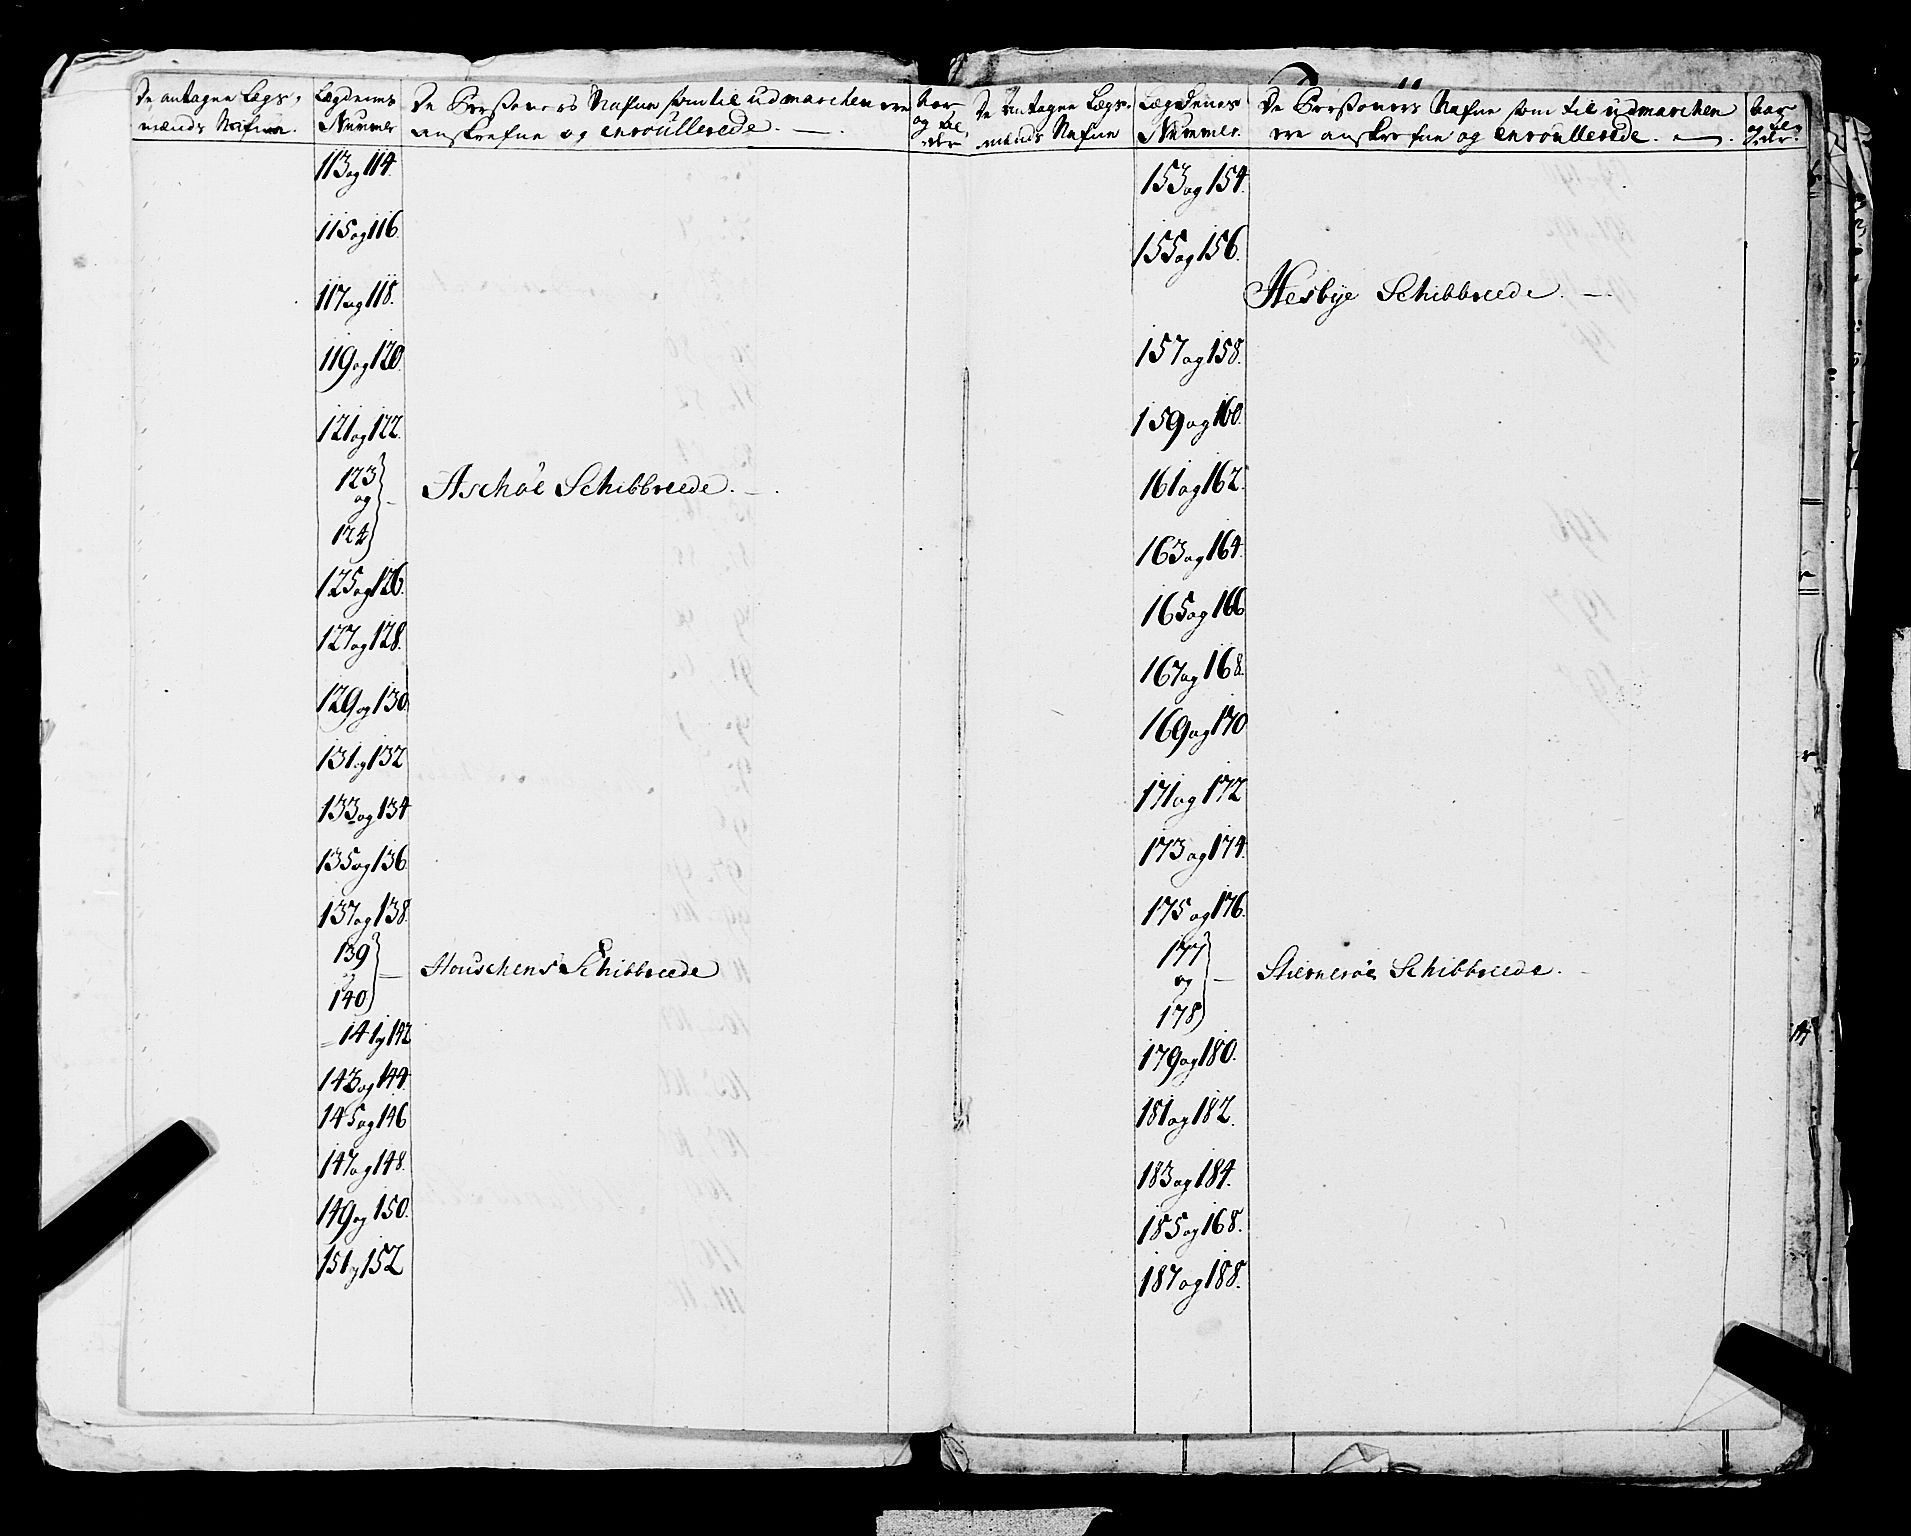 De antagne Lægs,
mænds Nafne.
Lægdenes
Nummer
De Persohners Nafne som til udmarchen ere
anskrefne og enroullerede.
har
og Læ,
der
113 og 114.
115 og 116.
117 og 118.
119 og 120
121 og 122.
123
og
124
Aschöe Schibbreede.
125 og 126.
127 og 128.
129 og 130
131 og 132
133 og 134
135 og 136
137 og 138.
139
og
140
Houschens Schibbreede
141 og 142
143 og 144.
145 og 146
147 og 148.
149 og 150.
151 og 152
De Antagne Lægs,
mænds Nafne
Lægdenes
Nummer.
De Persohners Nafne som til udmarchen
ere anskrefne og enroullerede.
153 og 154.
155 og 156.
Hesbye Schibbreede.
157 og 158.
159 og 160.
161 og 162.
163 og 164.
165 og 166
167 og 168.
169 og 170
171 og 172
173 og 174.
175 og 176.
177
og
178
Stierneröe Schibbreede.
179 og 180.
181 og 182.
183 og 184.
185 og 168.
187 og 188.